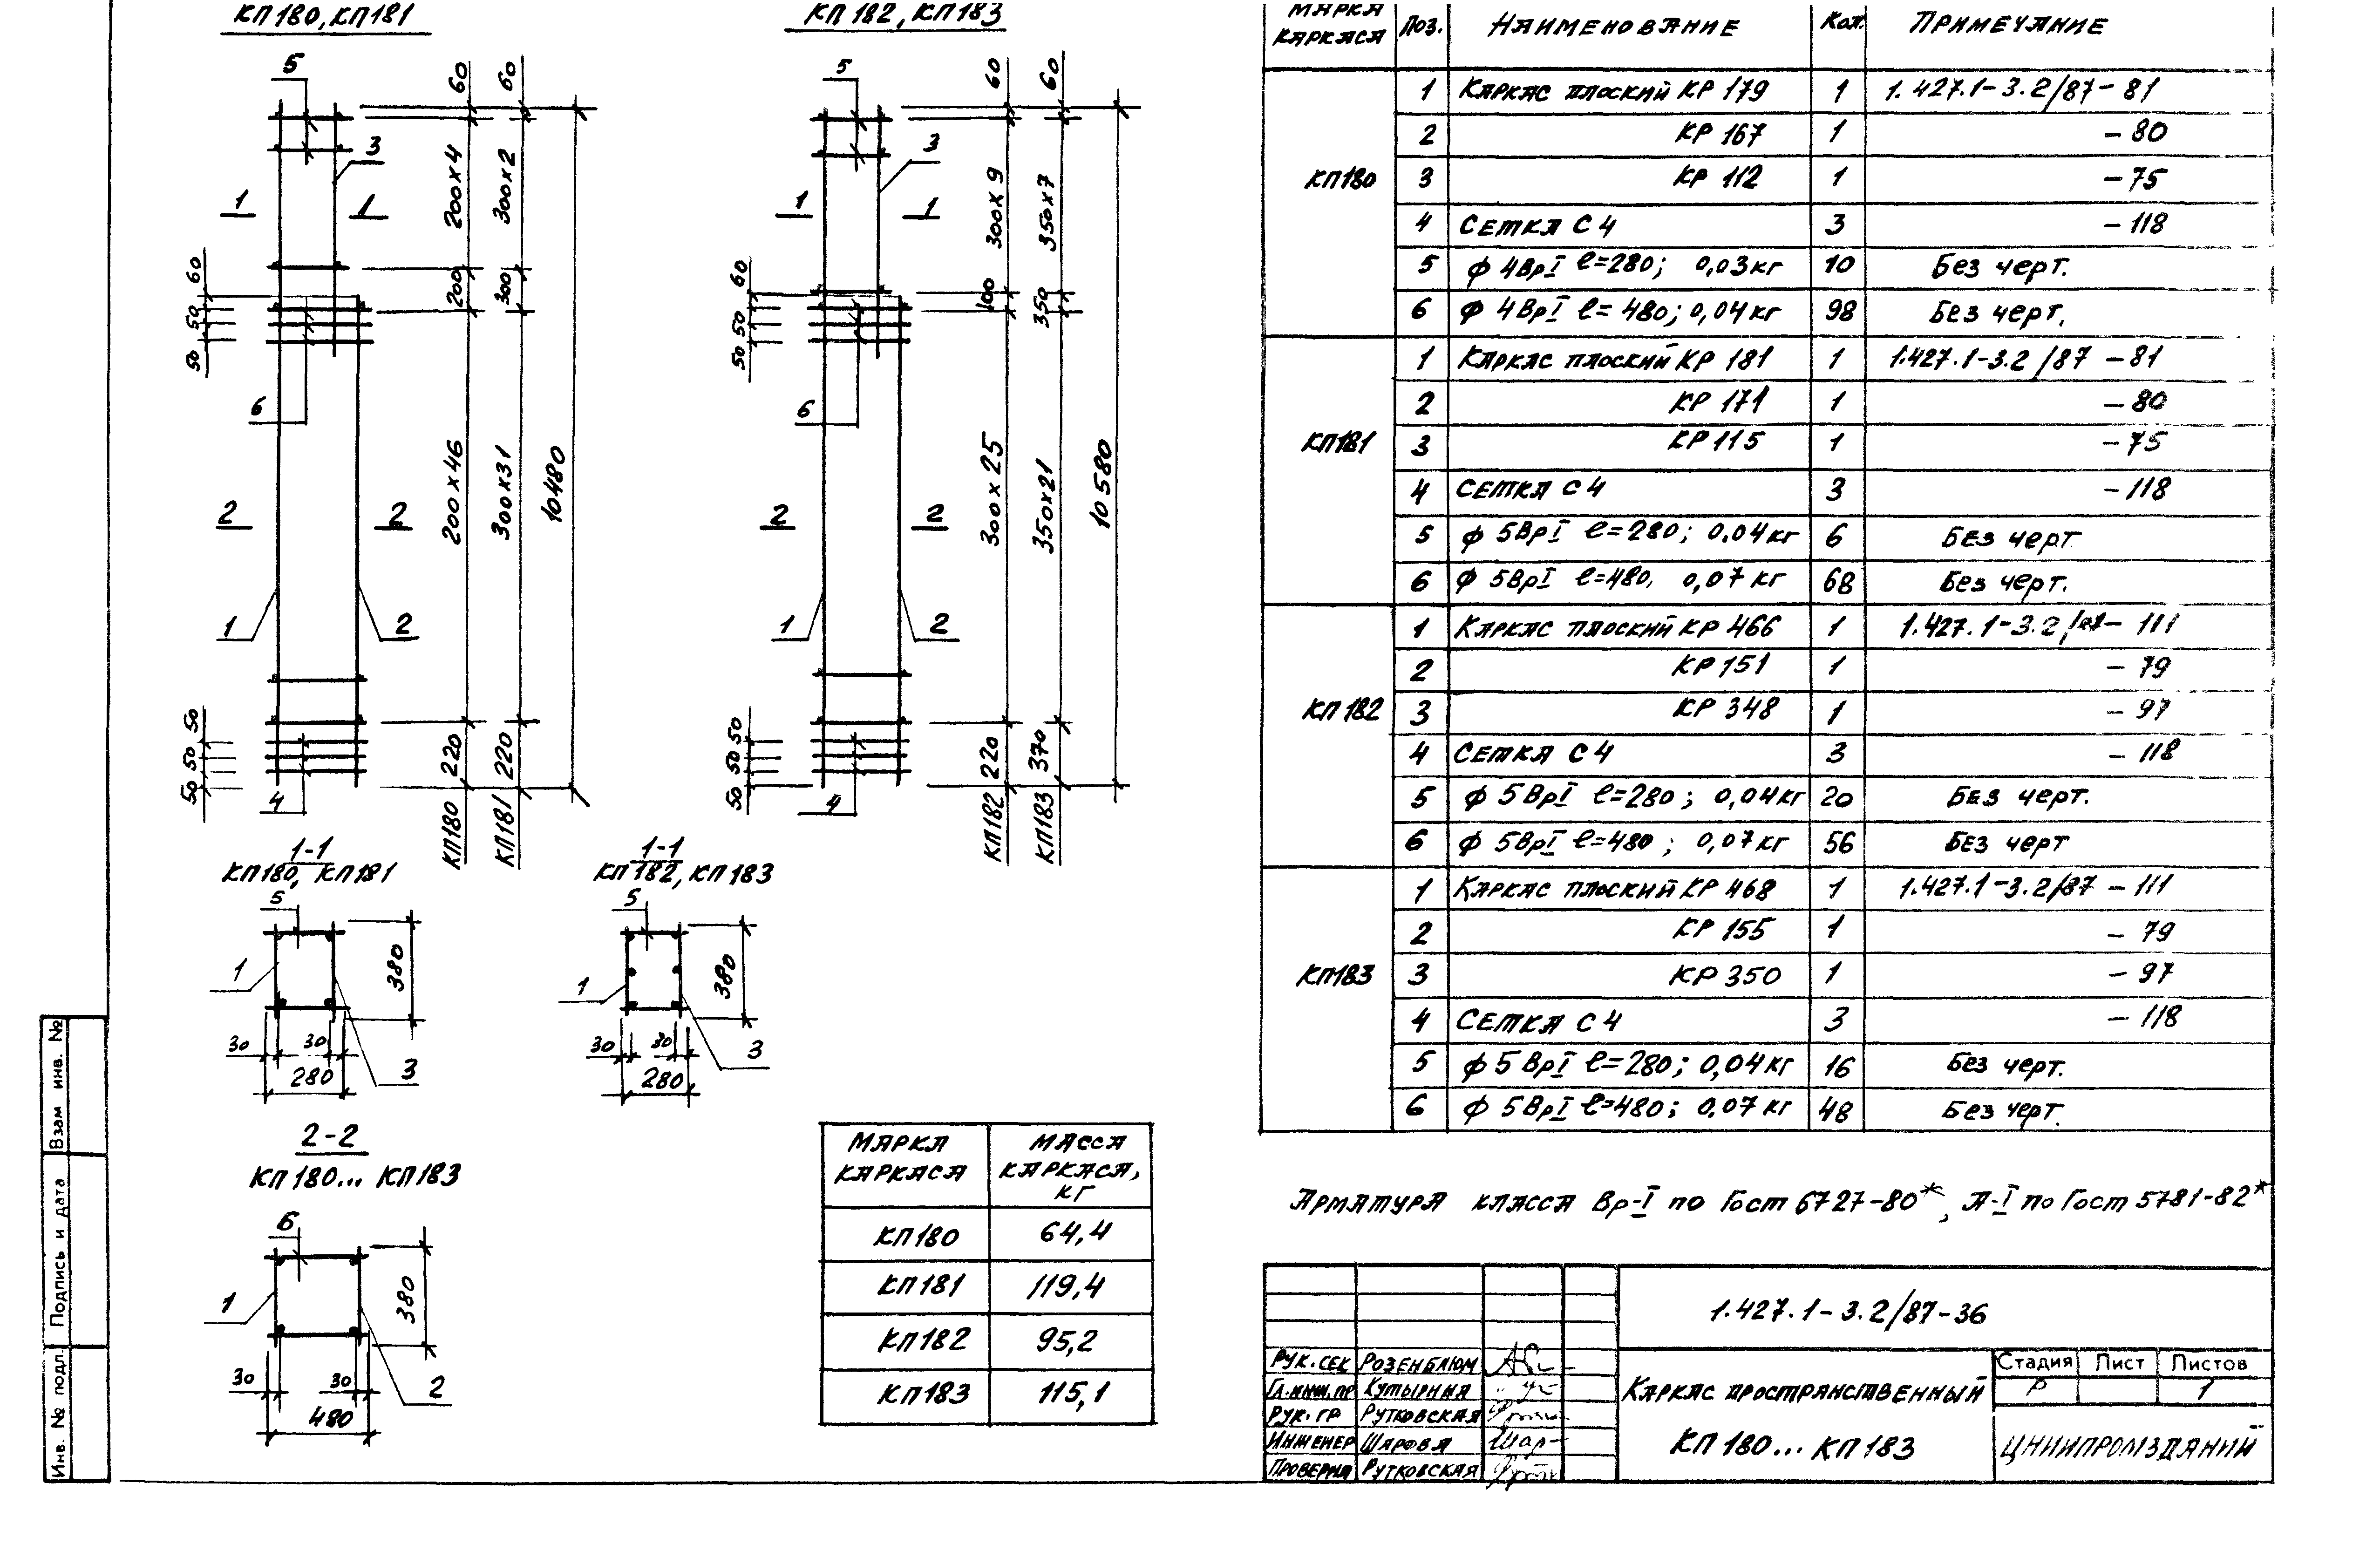 КП180, КП181
5
60
60
3
200х4
300х2
1
1
60
50
50
50
200
300
6
200х46
300х31
10480
2
2
1
2
50
50
50
4
220
220
КП180
КП181
КП182, КП183
5
60
60
3
300х9
350х7
1
1
60
50
50
50
100
350
6
300х25
350х21
10580
2
2
1
2
50
50
50
4
220
370
КП182
КП183
1-1
КП180, КП181
5
1
380
30
30
280
3
1-1
КП182, КП183
5
1
380
30
30
280
3
2-2
КП180... КП183
6
1
380
30
30
480
2
Марка каркаса
Масса каркаса, кг
КП180 64,4
КП181 119,4
КП182 95,2
КП183 115,1
Марка каркаса Поз. Наименование Кол. Примечание
КП180
1 Каркас плоский КР 179 1 1.427.1-3.2/87-81
2 КР 167 1 -80
3 КР 112 1 -75
4 Сетка С4 3 -118
5 ф 4ВрI ℓ=280; 0,03кг 10 Без черт.
6 ф 4ВрI ℓ=480; 0,04кг 98 Без черт.
КП181
1 Каркас плоский КР 181 1 1.427.1-3.2/87-81
2 КР 171 1 -80
3 КР 115 1 -75
4 Сетка С4 3 -118
5 ф 5ВрI ℓ=280; 0.04кг 6 Без черт.
6 ф 5ВрI ℓ=480, 0,07кг 68 Без черт.
КП182
1 Каркас плоский КР 466 1 1.427.1-3.2/87-111
2 КР 151 1 -79
3 КР 348 1 -97
4 Сетка С4 3 -118
5 ф 5ВрI ℓ=280; 0,04кг 20 Без черт.
6 ф 5ВрI ℓ=480; 0,07кг 56 Без черт
КП183
1 Каркас плоский КР 468 1 1.427.1-3.2/87-111
2 КР 155 1 -79
3 КР 350 1 -97
4 Сетка С4 3 -118
5 ф 5ВрI ℓ=280; 0,04кг 16 Без черт.
6 ф 5ВрI ℓ=480; 0,07кг 48 Без черт.
Арматура класса Вр-I по Гост 6727-80*, А-I по Гост 5781-82*
1.427.1-3.2/87-36
Рук. сек Розенблюм
Гл. инж. пр Кутырина
Рук. гр Рутковская
Инженер Шарова
Проверил Рутковская
Каркас пространственный
КП180... КП183
Стадия Лист Листов
Р 1
ЦНИИПРОМЗДАНИЙ
Взам инв. №
Подпись и дата
Инв. № подл.